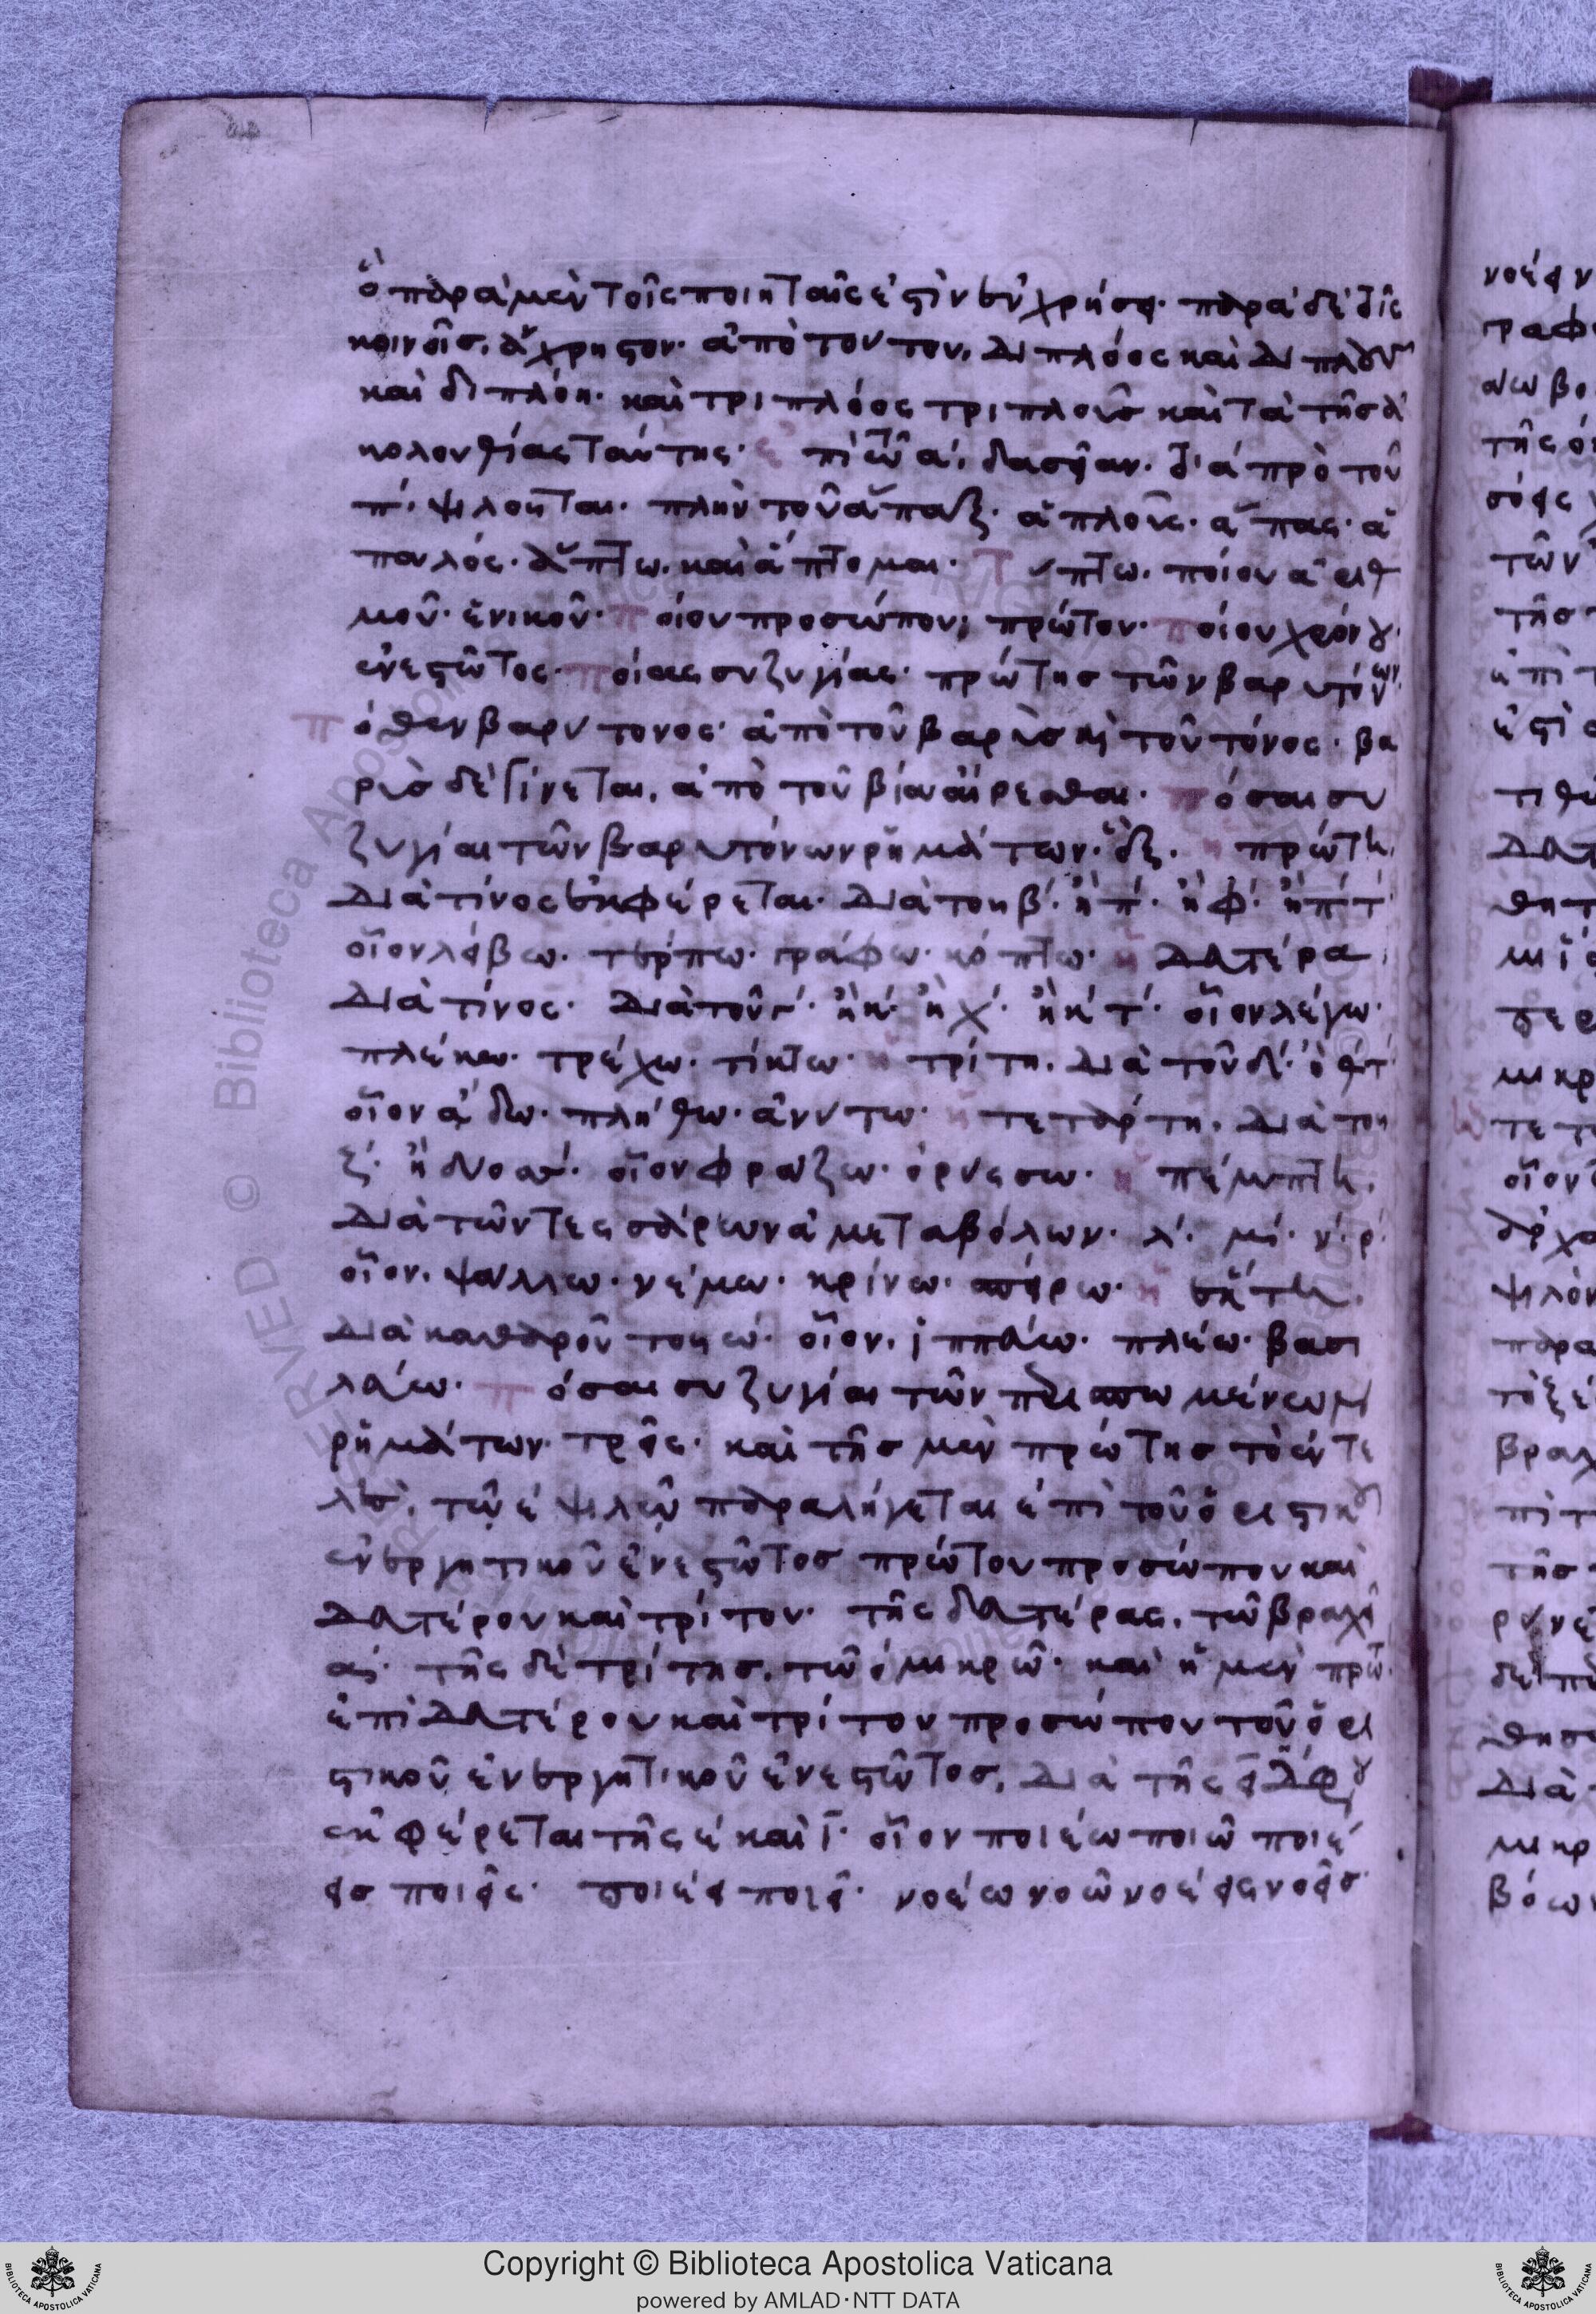 ὃ παρὰ μὲν τοῖς ποιηταῖς ἐστὶν ἐν χρήσει· παρὰ δὲ τοῖς
κοινοῖσ, ἄχρηστον· ἀπὸ τούτου, διπλόος καὶ διπλοῦς
καὶ διπλόη· καὶ τριπλόος τριπλοῦσ καὶ τὰ τῆσ ἀ
κολουθίας ταύτης· δασεῖαν. τὸ α πρὸ τοῦ
π. ψιλοῦται. πλὴν τοῦ ἅπαξ. ἁπλοῦς. ἅπας. ἁ
παλός. ἅπτω. καὶ ἅπτομαι. Τύπτω. ποίου ἀριθ
μοῦ. ἑνικοῦ. Ποίου προσώπου; πρώτου. Ποίου χρόνου.
ἐνεστῶτος. Ποίας συζυγίας. πρώτησ τῶν βαρυτόνων.
Πόθεν βαρύτονος. ἀπὸ τοῦ βαρὺσ καὶ τοῦ τόνος. βα
ρὺσ δὲ γίνεται, ἀπὸ τοῦ βίαι αἴρεσθαι. Πόσαι συ
ζυγίαι τῶν βαρυτόνων ῥημάτων. ἕξ. ἡ πρώτη.
Διὰ τίνος ἐκφέρεται. Διὰ τοῦ β. ἢ π. ἢ φ. ἢ πτ
οἷον λείβω. τέρπω. γράφω. κόπτω. ἡ δευτέρα.
Διὰ τίνος. Διὰ τοῦ γ. ἢ κ. ἢ χ. ἢ κτ. οἷον λέγω.
πλέκω. τρέχω. τίκτω. ἡ τρίτη. Διὰ τοῦ δ. θ τ
οἷον ἄδω. πλήθω. ἀνύτω. ἡ τετάρτη. Διὰ τοῦ
ζ. ἢ δύο σσ. οἷον φράζω. ὀρύσσω. ἡ πέμπτη.
Διὰ τῶν τεσσάρων ἀμεταβόλων. λ. μ. ν. ρ
οἷον. ψάλλω. νέμω. κρίνω. σπείρω. ἡ ἕκτη.
Διὰ καθαροῦ τοῦ ω. οἷον. ἱππεύω. πλέω. βασι
λεύω. Πόσαι συζυγίαι τῶν περισπωμένων
ῥημάτων. τρεῖς. καὶ τῆσ μὲν πρώτησ τὸ ἐντε
λὲσ, τῶ ε ψιλῶ παραλήγεται ἐπὶ τοῦ ὁριστικοῦ
ἐνεργητικοῦ ἐνεστῶτοσ πρώτου προσώπου καὶ
Δευτέρου καὶ τρίτου. τῆς δευτέρας, τῶ βραχεῖ
α. τῆς δὲ τρίτησ, τῶ ο μικρῶ. καὶ ἡ μὲν πρώτ
ἐπὶ Δευτέρου καὶ τρίτου προσώπου τοῦ ὁρι
στικοῦ ἐνεργητικοῦ ἐνεστῶτοσ, Διὰ τῆς ει διφθόγγου
ἐκφέρεται τῆς ε καὶ ι. οἷον ποιέω ποιῶ ποιέ
εισ ποιεῖς. ποιέει ποιεῖ. νοέω νοῶ νοέεις νοεῖσ